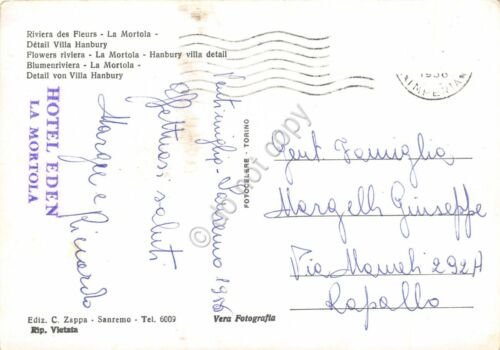 Riviera des Fleurs - La Mortola -
Détail Villa Hanbury
Flowers riviera - La Mortola - Hanbury villa detail
Blumenriviera - La Mortola -
Detail von Villa Hanbury
HOTEL EDEN
LA MORTOLA
Ventimiglia - Sanremo 1956
Affettuosi saluti
Marge e Riccardo
FOTOCELERE - TORINO
1956
(IMPERIA)
Gent Famiglia
Margelli Giuseppe
Via Mameli 292A
Rapallo
Ediz. C. Zappa - Sanremo - Tel. 6009
Rip. Vietata
Vera Fotografia
do not copy